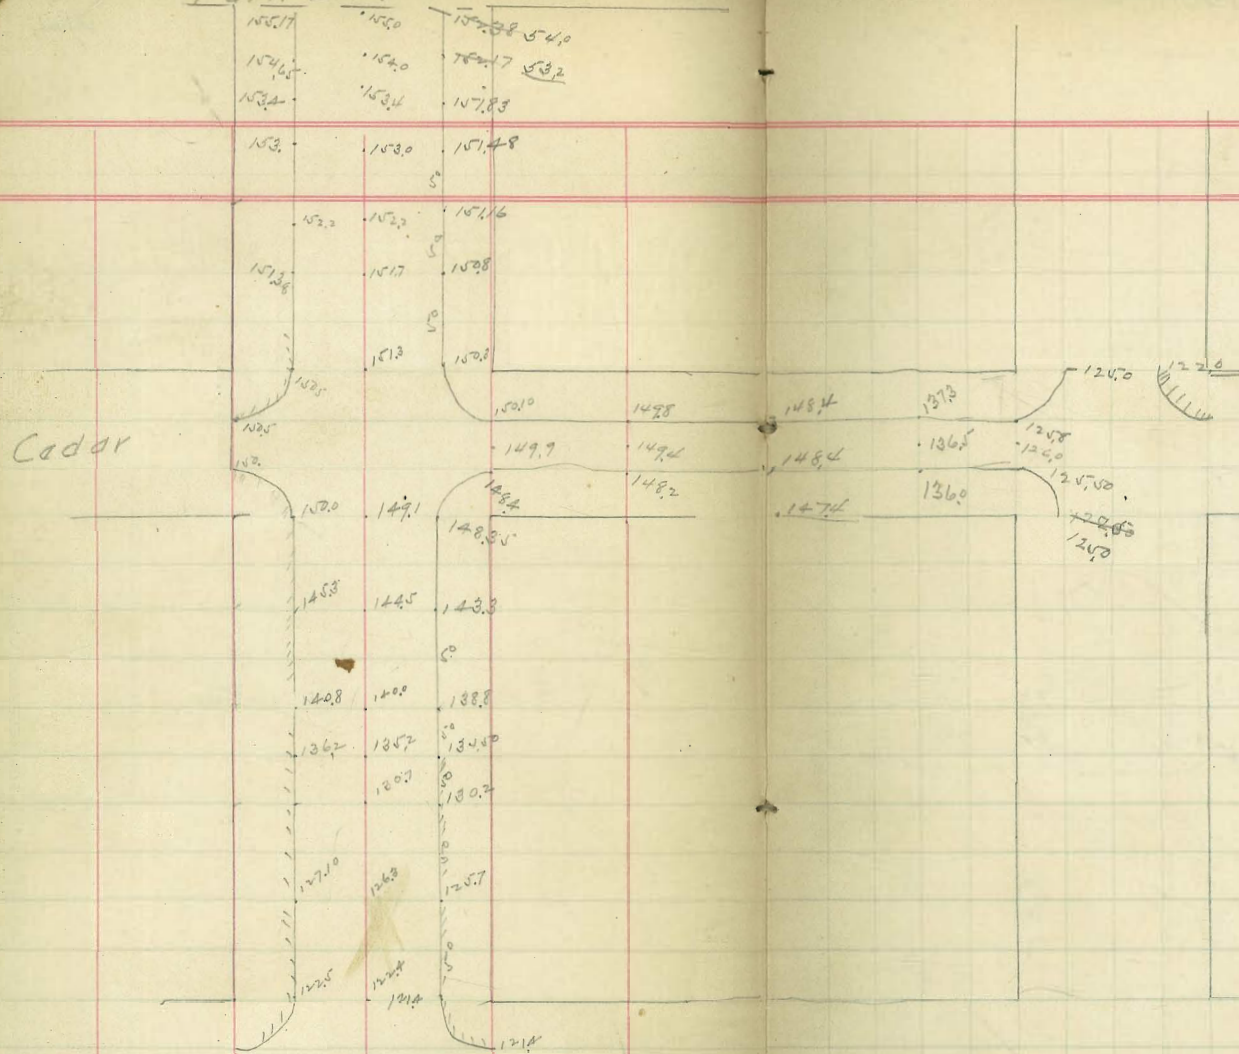 155.17 155.0 152.38 54.0
154.65 154.0 152.17 53.2
153.4 153.4 151.83
153. 153.0 151.48
50
152.2 152.2 151.16
50
151.38 151.7 150.8
50
151.3 150.8 125.0 122.0
150.5 150.10 149.8 148.4 137.3
150.5 125.8
Cedar 149.9 149.4 148.4 136.5 126.0
150. 148.4 148.2 136.0 125.50
150.0 149.1 147.4
148.35 125.0
145.3 144.5 143.3
50
140.8 140.0 138.8
50
136.2 135.2 134.50
50
130.7 130.2
50
127.10 126.3 125.7
50
122.5 122.4
121.4
121.4